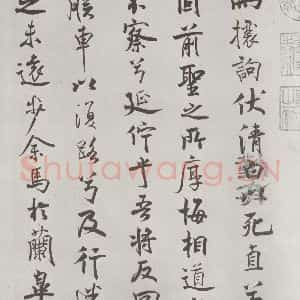 而攘訽伏清白以死直兮
固前聖之所厚悔相道
不察兮延佇乎吾將反回
朕車以復路兮及行迷
之未遠步余馬於蘭皋
Shufawang.CN